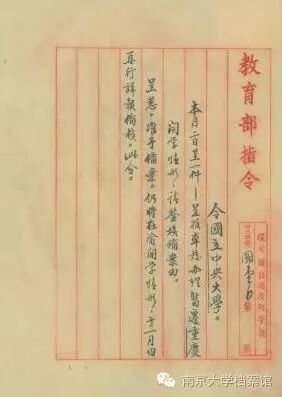 教育部指令
令國立中央大學。
本月二日呈一件—呈報本校加緊暫遷重慶
開學情形，請鑒核備案由。
呈悉。准予備案。仍將在渝開學情形，于一月內
再行詳報備核。此令。
南京大学档案馆